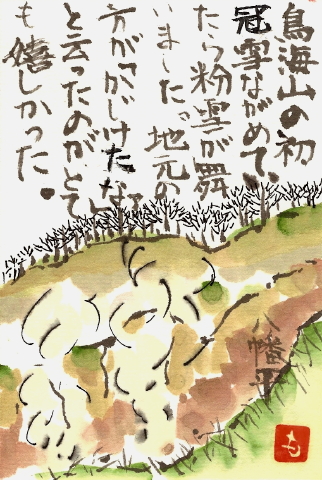 鳥海山の初
冠雪ながめてい
たら粉雪が舞
いました。地元の
方が「かじけたな」
と云ったのがとて
も嬉しかった。
八幡平
も